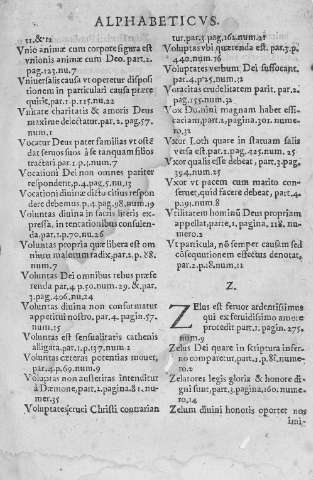 ALPHABETICVS.
11.&12
Vnio animæ cum corpore figura est
vnionis animæ cum Deo. part.2.
pag.123.nu.7
Vniuersalis causa vt operetur disposi
tionem in particulari causa prære
quirit, par.1. p.115.nu.22
Vnitate charitatis & amoris Deus
maxime delectatur. par.2. pag.57.
num.1
Vocatur Deus pater familias vt oste
dat seruos suos à se tanquam filios
tractari par.1.p.1.num.7
Vocationi Dei non omnes pariter
respondent, p.4.pag.5.nu.13
Vocationi diuinæ dicto citius respon
dere debemus. p.4. pag.98.num.19
Voluntas diuina in sacris literis ex
pressa, in tentationibus consulen
da.par.1.p.70.nu.26
Voluntas propria quæ libera est om
nium malorum radix.par.2.p.88.
num.7
Voluntas Dei omnibus rebus præfe
renda par.4.p.50.num.29.& par.
3.pag.406.nu.24
Voluntas diuina non conformatur
appetitui nostro, par.4. pagin.57.
num.15
Voluntas est sensualitatis cathenis
alligata.par.1.p.137.num.2
Voluntas cæteras potentias mouet,
par.4.p.69.num.9
Voluptas non austeritas intenditur
à Dæmone, part.2.pagina.81.nu-
mer.35
Voluptates crucis Christi contrarian
tur.par.5 pag.162.num.41
Voluptas vbi quærenda est. par.3.p.
440.num.16
Voluptates verbum Dei suffocant,
par.4.p.25.num.32
Voracitas crudelitatem parit. par.2.
pag.155.num.32
Vox Domini magnam habet effi-
caciam, part.2, pagina.301.nume-
ro.32
Vxor Loth quare in statuam salis
versa est.par.1.pag.425.num.25
Vxor qualis esse debeat, part.3.pag.
394.num.25
Vxor vt pacem cum marito con-
seruet, quid facere debeat, part.4-
p.91.num.8
Vtilitatem hominũ Deus propriam
appellat, parte,1, pagina, 118. nu-
mero.2
Vt particula, nõ semper causam sed
cõsequutionem effectus denotat,
par.2.p.18.num.11
Z.
ZElus est feruor ardentissimus
qui ex feruidissimo amore
procedit part.1. pagin.275.
num.9
Zelus Dei quare in scriptura infer-
no comparetur, part.2, p.81, nume-
ro.2
Zelatores legis gloria & honore di-
gni sunt, par.3. pagina, 160. nume-
ro, 14
Zelum diuini honoris oportet nos
imi-